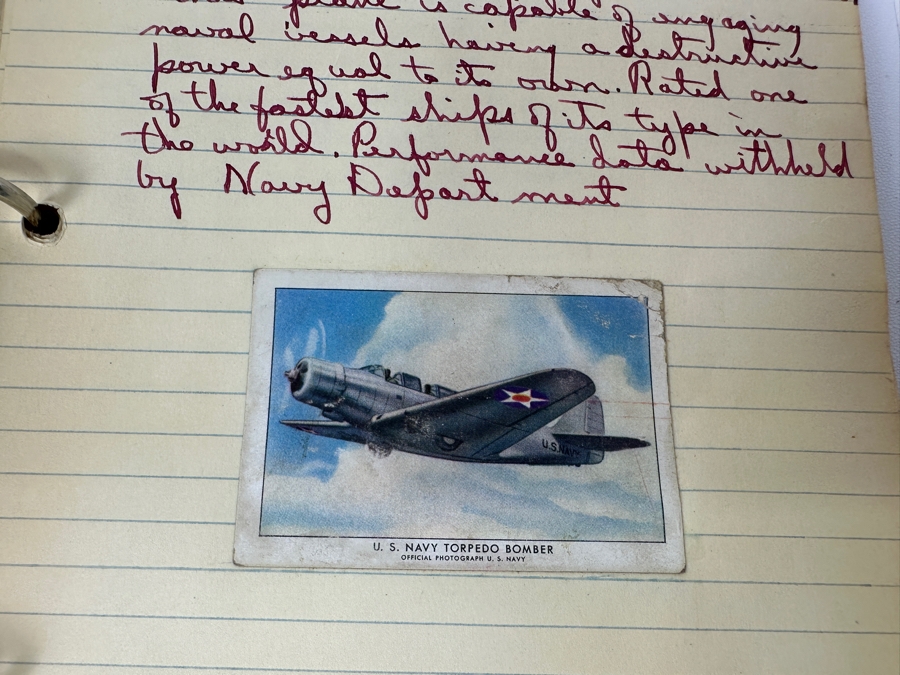 plane is capable of engaging
naval vessels having a destructive
power equal to its own. Rated one
of the fastest ships of its type in
the world. Performance data withheld
by Navy Department
U.S.NAVY
U. S. NAVY TORPEDO BOMBER
OFFICIAL PHOTOGRAPH U. S. NAVY